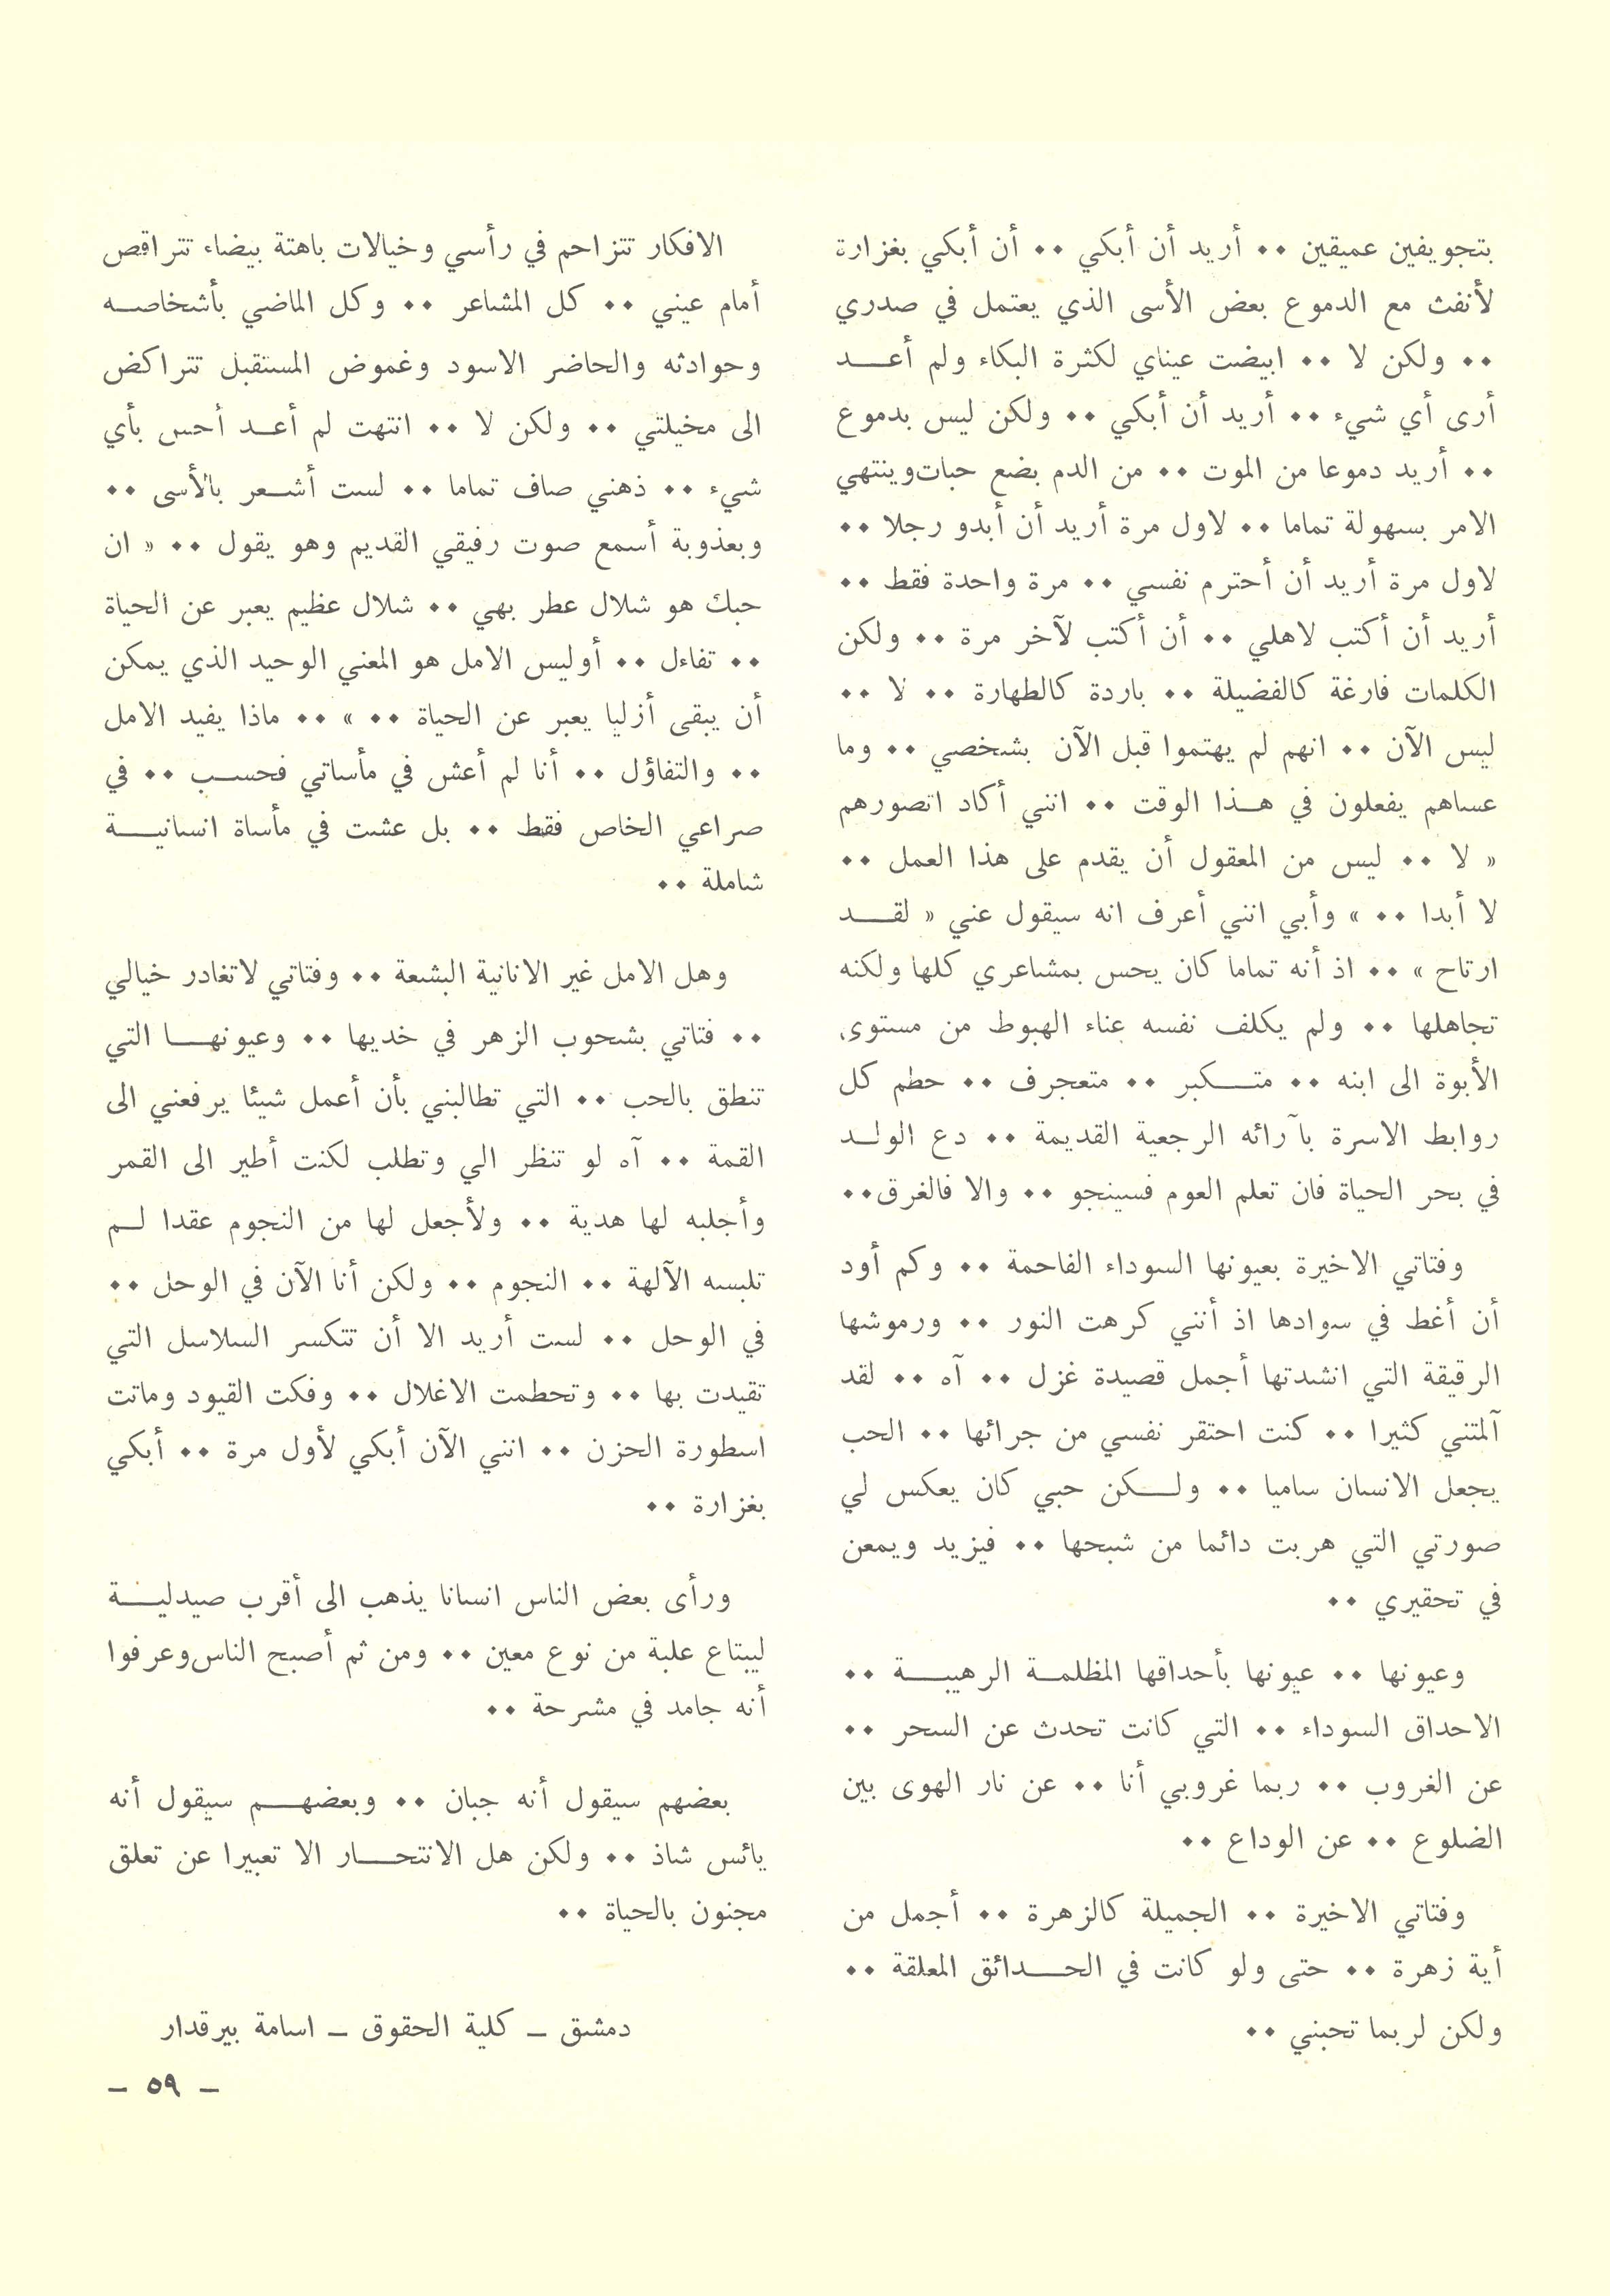 بتجويفين عميقين ٠٠ أريد أن أبكي ٠٠ أن أبكي بغزارة
لأنفث مع الدموع بعض الأسى الذي يعتمل في صدري
٠٠ ولكن لا ٠٠ ابيضت عيناي لكثرة البكاء ولم أعـــد
أرى أي شيء ٠٠ أريد أن أبكي ٠٠ ولكن ليس بدموع
٠٠ أريد دموعا من الموت ٠٠ من الدم بضع حبات وينتهي
الامر بسهولة تماما ٠٠ لاول مرة أريد أن أبدو رجلا ٠٠
لاول مرة أريد أن أحترم نفسي ٠٠ مرة واحدة فقط ٠٠
أريد أن أكتب لاهلي ٠٠ أن أكتب لآخر مرة ٠٠ ولكن
الكلمات فارغة كالفضيلة ٠٠ باردة كالطهارة ٠٠ لا ٠٠
ليس الآن ٠٠ انهم لم يهتموا قبل الآن بشخصي ٠٠ وما
عساهم يفعلون في هـــذا الوقت ٠٠ انني أكاد اتصورهم
« لا ٠٠ ليس من المعقول أن يقدم على هذا العمل ٠٠
لا أبدا ٠٠ » وأبي انني أعرف انه سيقول عني « لقـــد
ارتاح » ٠٠ اذ أنه تماما كان يحس بمشاعري كلها ولكنه
تجاهلها ٠٠ ولم يكلف نفسه عناء الهبوط من مستوى
الأبوة الى ابنه ٠٠ متـــكبر ٠٠ متعجرف ٠٠ حطم كل
روابط الاسرة بآرائه الرجعية القديمة ٠٠ دع الولـــد
في بحر الحياة فان تعلم العوم فسينجو ٠٠ والا فالغرق٠٠
وفتاتي الاخيرة بعيونها السوداء الفاحمة ٠٠ وكم أود
أن أغط في سوادها اذ أنني كرهت النور ٠٠ ورموشها
الرقيقة التي انشدتها أجمل قصيدة غزل ٠٠ آه ٠٠ لقد
آلمتني كثيرا ٠٠ كنت احتقر نفسي من جرائها ٠٠ الحب
يجعل الانسان ساميا ٠٠ ولـــكن حبي كان يعكس لي
صورتي التي هربت دائما من شبحها ٠٠ فيزيد ويمعن
في تحقيري ٠٠
وعيونها ٠٠ عيونها بأحداقها المظلمـــة الرهيبـــة ٠٠
الاحداق السوداء ٠٠ التي كانت تحدث عن السحر ٠٠
عن الغروب ٠٠ ربما غروبي أنا ٠٠ عن نار الهوى بين
الضلوع ٠٠ عن الوداع ٠٠
وفتاتي الاخيرة ٠٠ الجميلة كالزهرة ٠٠ أجمل من
أية زهرة ٠٠ حتى ولو كانت في الحـــدائق المعلقة ٠٠
ولكن لربما تحبني ٠٠
الافكار تتزاحم في رأسي وخيالات باهتة بيضاء تتراقص
أمام عيني ٠٠ كل المشاعر ٠٠ وكل الماضي بأشخاصـــه
وحوادثه والحاضر الاسود وغموض المستقبل تتراكض
الى مخيلتي ٠٠ ولكن لا ٠٠ انتهت لم أعـــد أحس بأي
شيء ٠٠ ذهني صاف تماما ٠٠ لست أشـــعر بالأسى ٠٠
وبعذوبة أسمع صوت رفيقي القديم وهو يقول ٠٠ « ان
حبك هو شلال عطر بهي ٠٠ شلال عظيم يعبر عن الحياة
٠٠ تفاءل ٠٠ أوليس الامل هو المعني الوحيد الذي يمكن
أن يبقى أزليا يعبر عن الحياة ٠٠ » ٠٠ ماذا يفيد الامل
٠٠ والتفاؤل ٠٠ أنا لم أعش في مأساتي فحسـب ٠٠ في
صراعي الخاص فقط ٠٠ بل عشت في مأساة انسانيـــة
شاملة ٠٠
وهل الامل غير الانانية البشعة ٠٠ وفتاتي لاتغادر خيالي
٠٠ فتاتي بشحوب الزهر في خديها ٠٠ وعيونهـــا التي
تنطق بالحب ٠٠ التي تطالبني بأن أعمل شيئا يرفعني الى
القمة ٠٠ آه لو تنظر الي وتطلب لكنت أطير الى القمر
وأجلبه لها هدية ٠٠ ولأجعل لها من النجوم عقدا لـــم
تلبسه الآلهة ٠٠ النجوم ٠٠ ولكن أنا الآن في الوحل ٠٠
في الوحل ٠٠ لست أريد الا أن تتكسر السلاسل التي
تقيدت بها ٠٠ وتحطمت الاغلال ٠٠ وفكت القيود وماتت
اسطورة الحزن ٠٠ انني الآن أبكي لأول مرة ٠٠ أبكي
بغزارة ٠٠
ورأى بعض الناس انسانا يذهب الى أقرب صيدليـــة
ليبتاع علبة من نوع معين ٠٠ ومن ثم أصبح الناس وعرفوا
أنه جامد في مشرحة ٠٠
بعضهم سيقول أنه جبان ٠٠ وبعضهـــم سيقول أنه
يائس شاذ ٠٠ ولكن هل الانتحـــار الا تعبيرا عن تعلق
مجنون بالحياة ٠٠
دمشق ـ كلية الحقوق ـ اسامة بيرقدار
ـ ٥٩ ـ